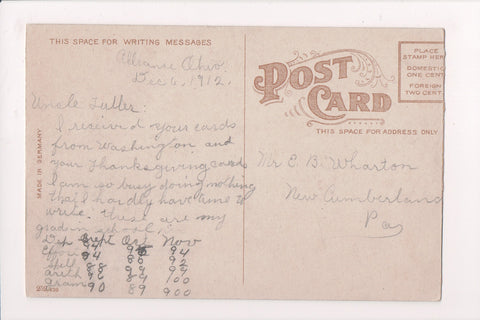 THIS SPACE FOR WRITING MESSAGES
Alliance Ohio.
Dec 6, 1912.
Uncle
I receivd your cards
from Washington and
your Thanksgiving card
I am so busy doing nothing
that I hardly have time to
write. these are my
grads in school.
Dep Sept Oct Nov
94
94 86 92
Spell 88 99 99
arith 96 84 100
Gram 90 89 900
MADE IN GERMANY
POST CARD
THIS SPACE FOR ADDRESS ONLY
PLACE
STAMP HERE
DOMESTIC
ONE CENT
FOREIGN
TWO CENTS
Mr E. B. Wharton
New Cumberland
Pa